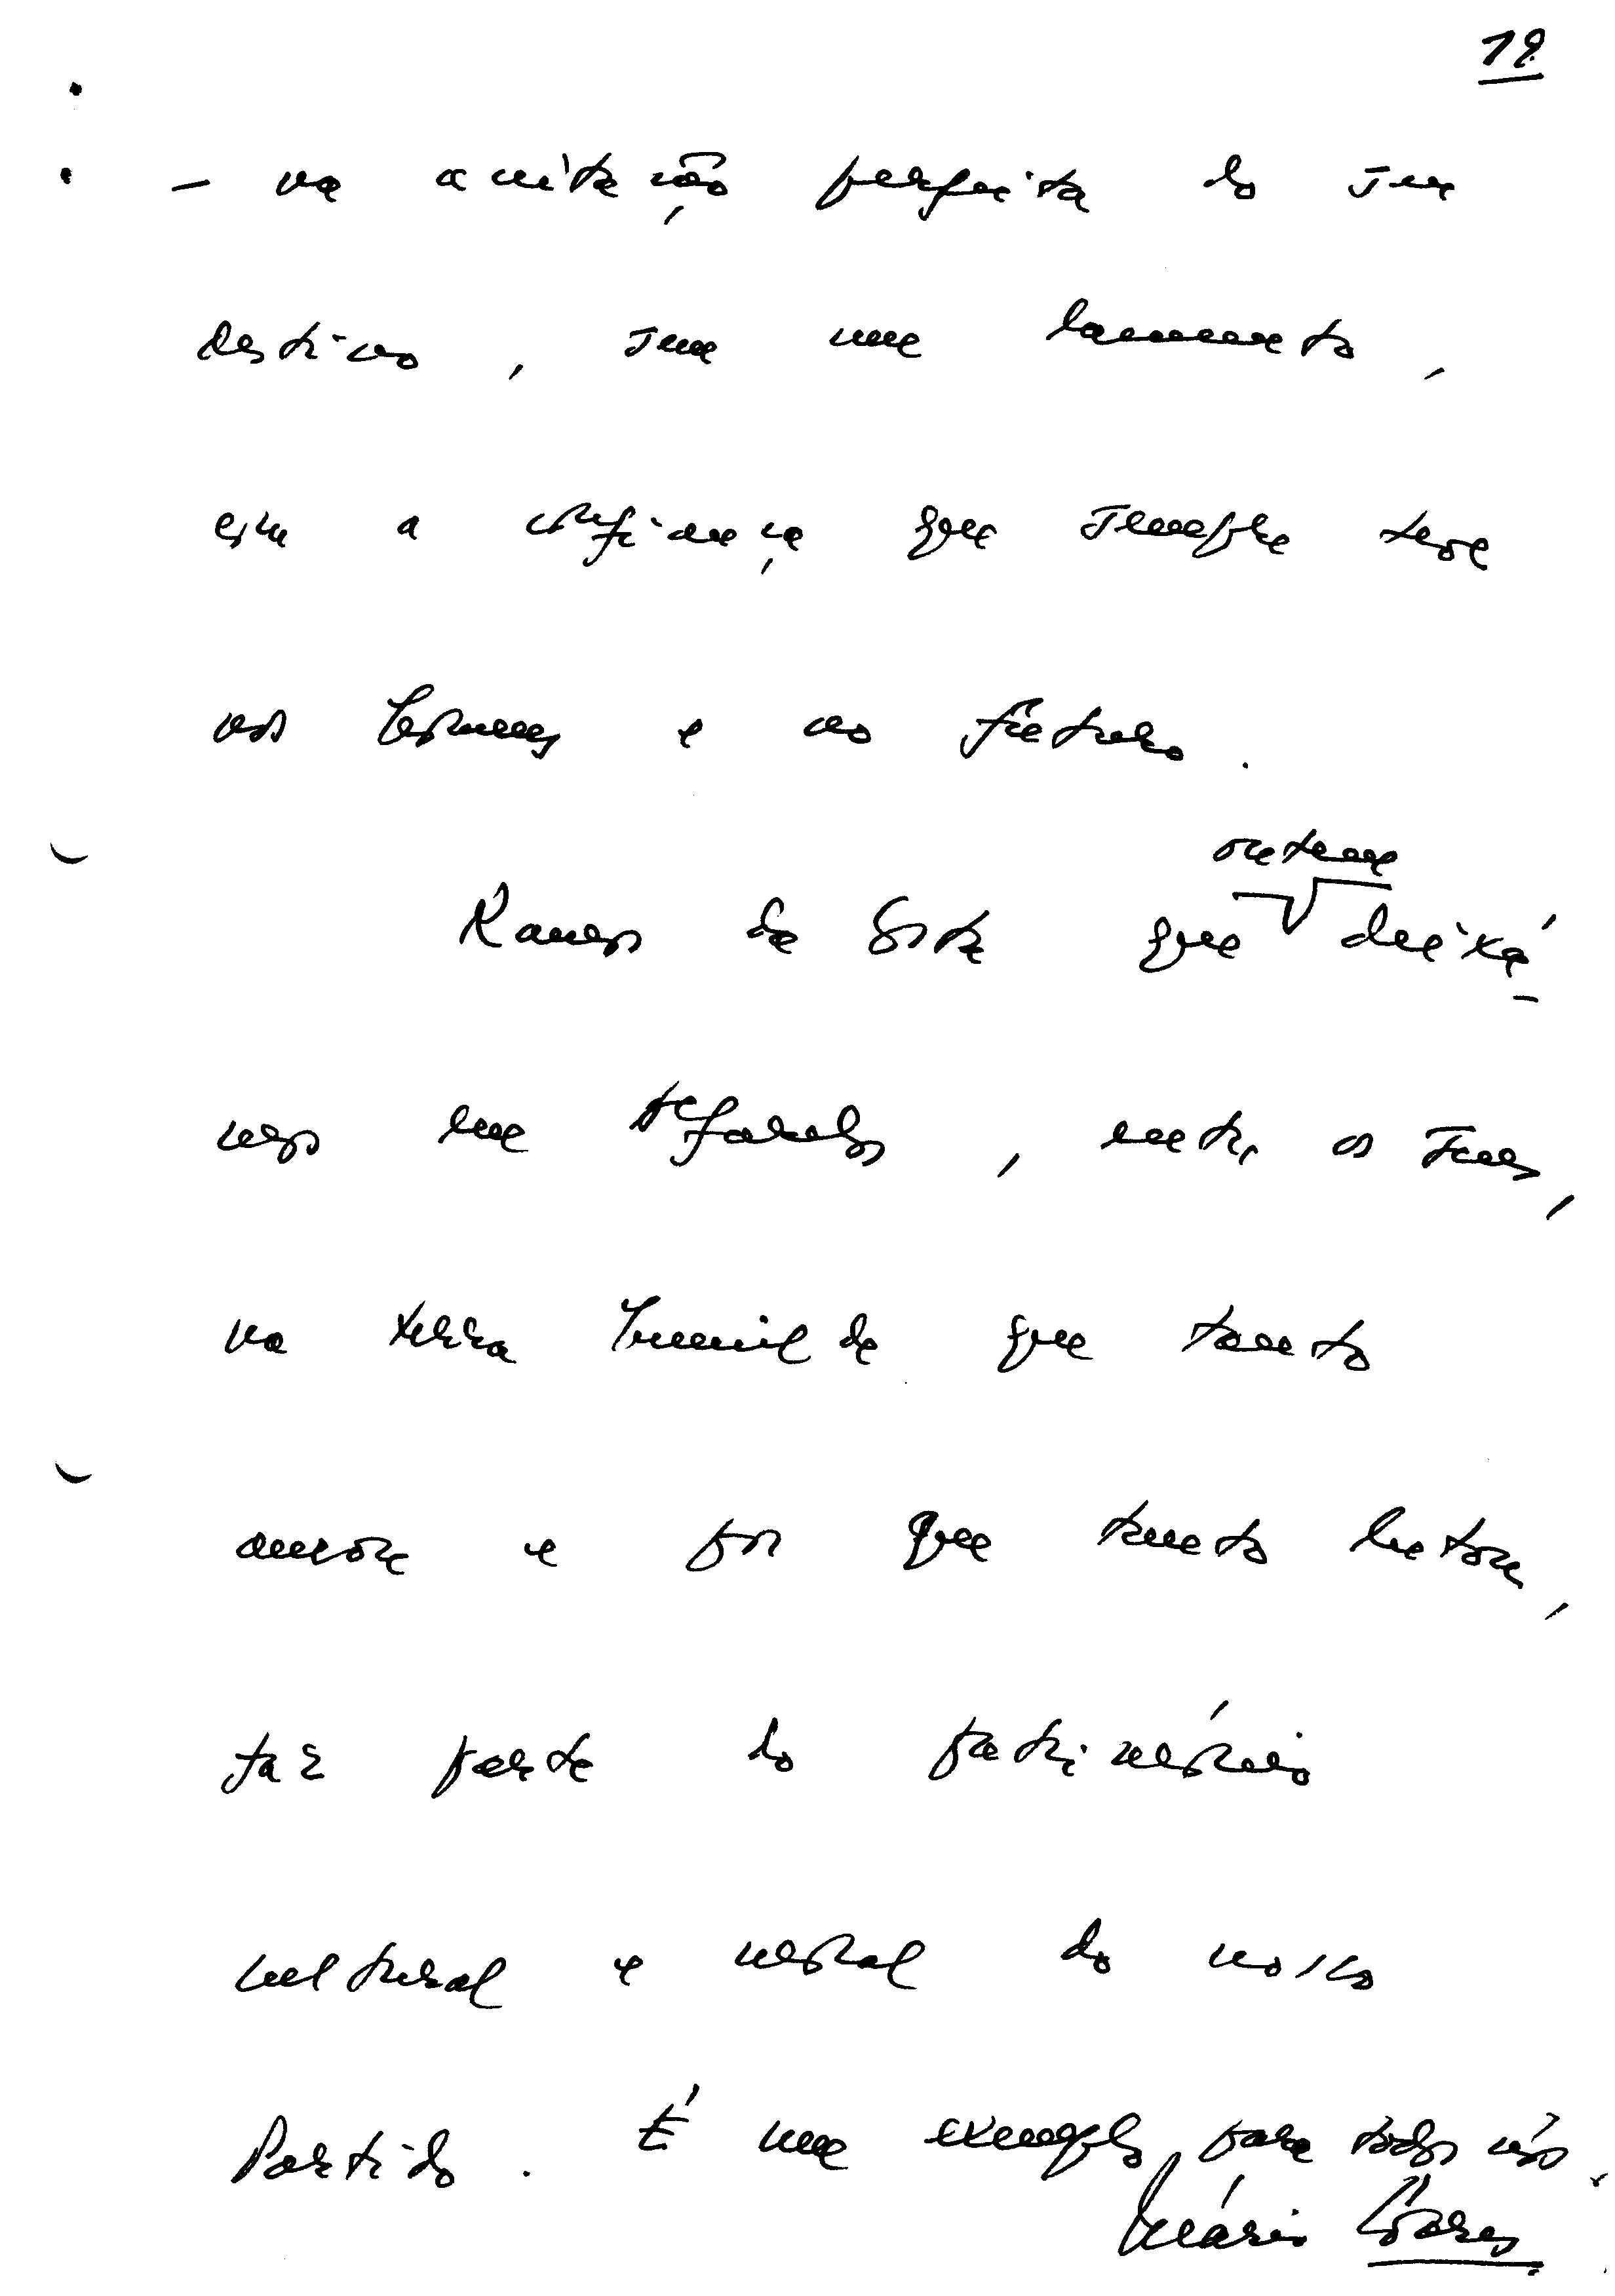 19
- na aceitação perfeita do seu
destino, sem um lamento,
com a confiança que sempre teve
nos homens e no futuro.
ontem
Ramos da Costa que deixá-
mos em Alfarelos, entre os seus,
na terra humilde que tanto
amou e por que tanto lutou,
faz parte do património
cultural e moral do nosso
Partido. É um exemplo para todos nós.
Mário Soares